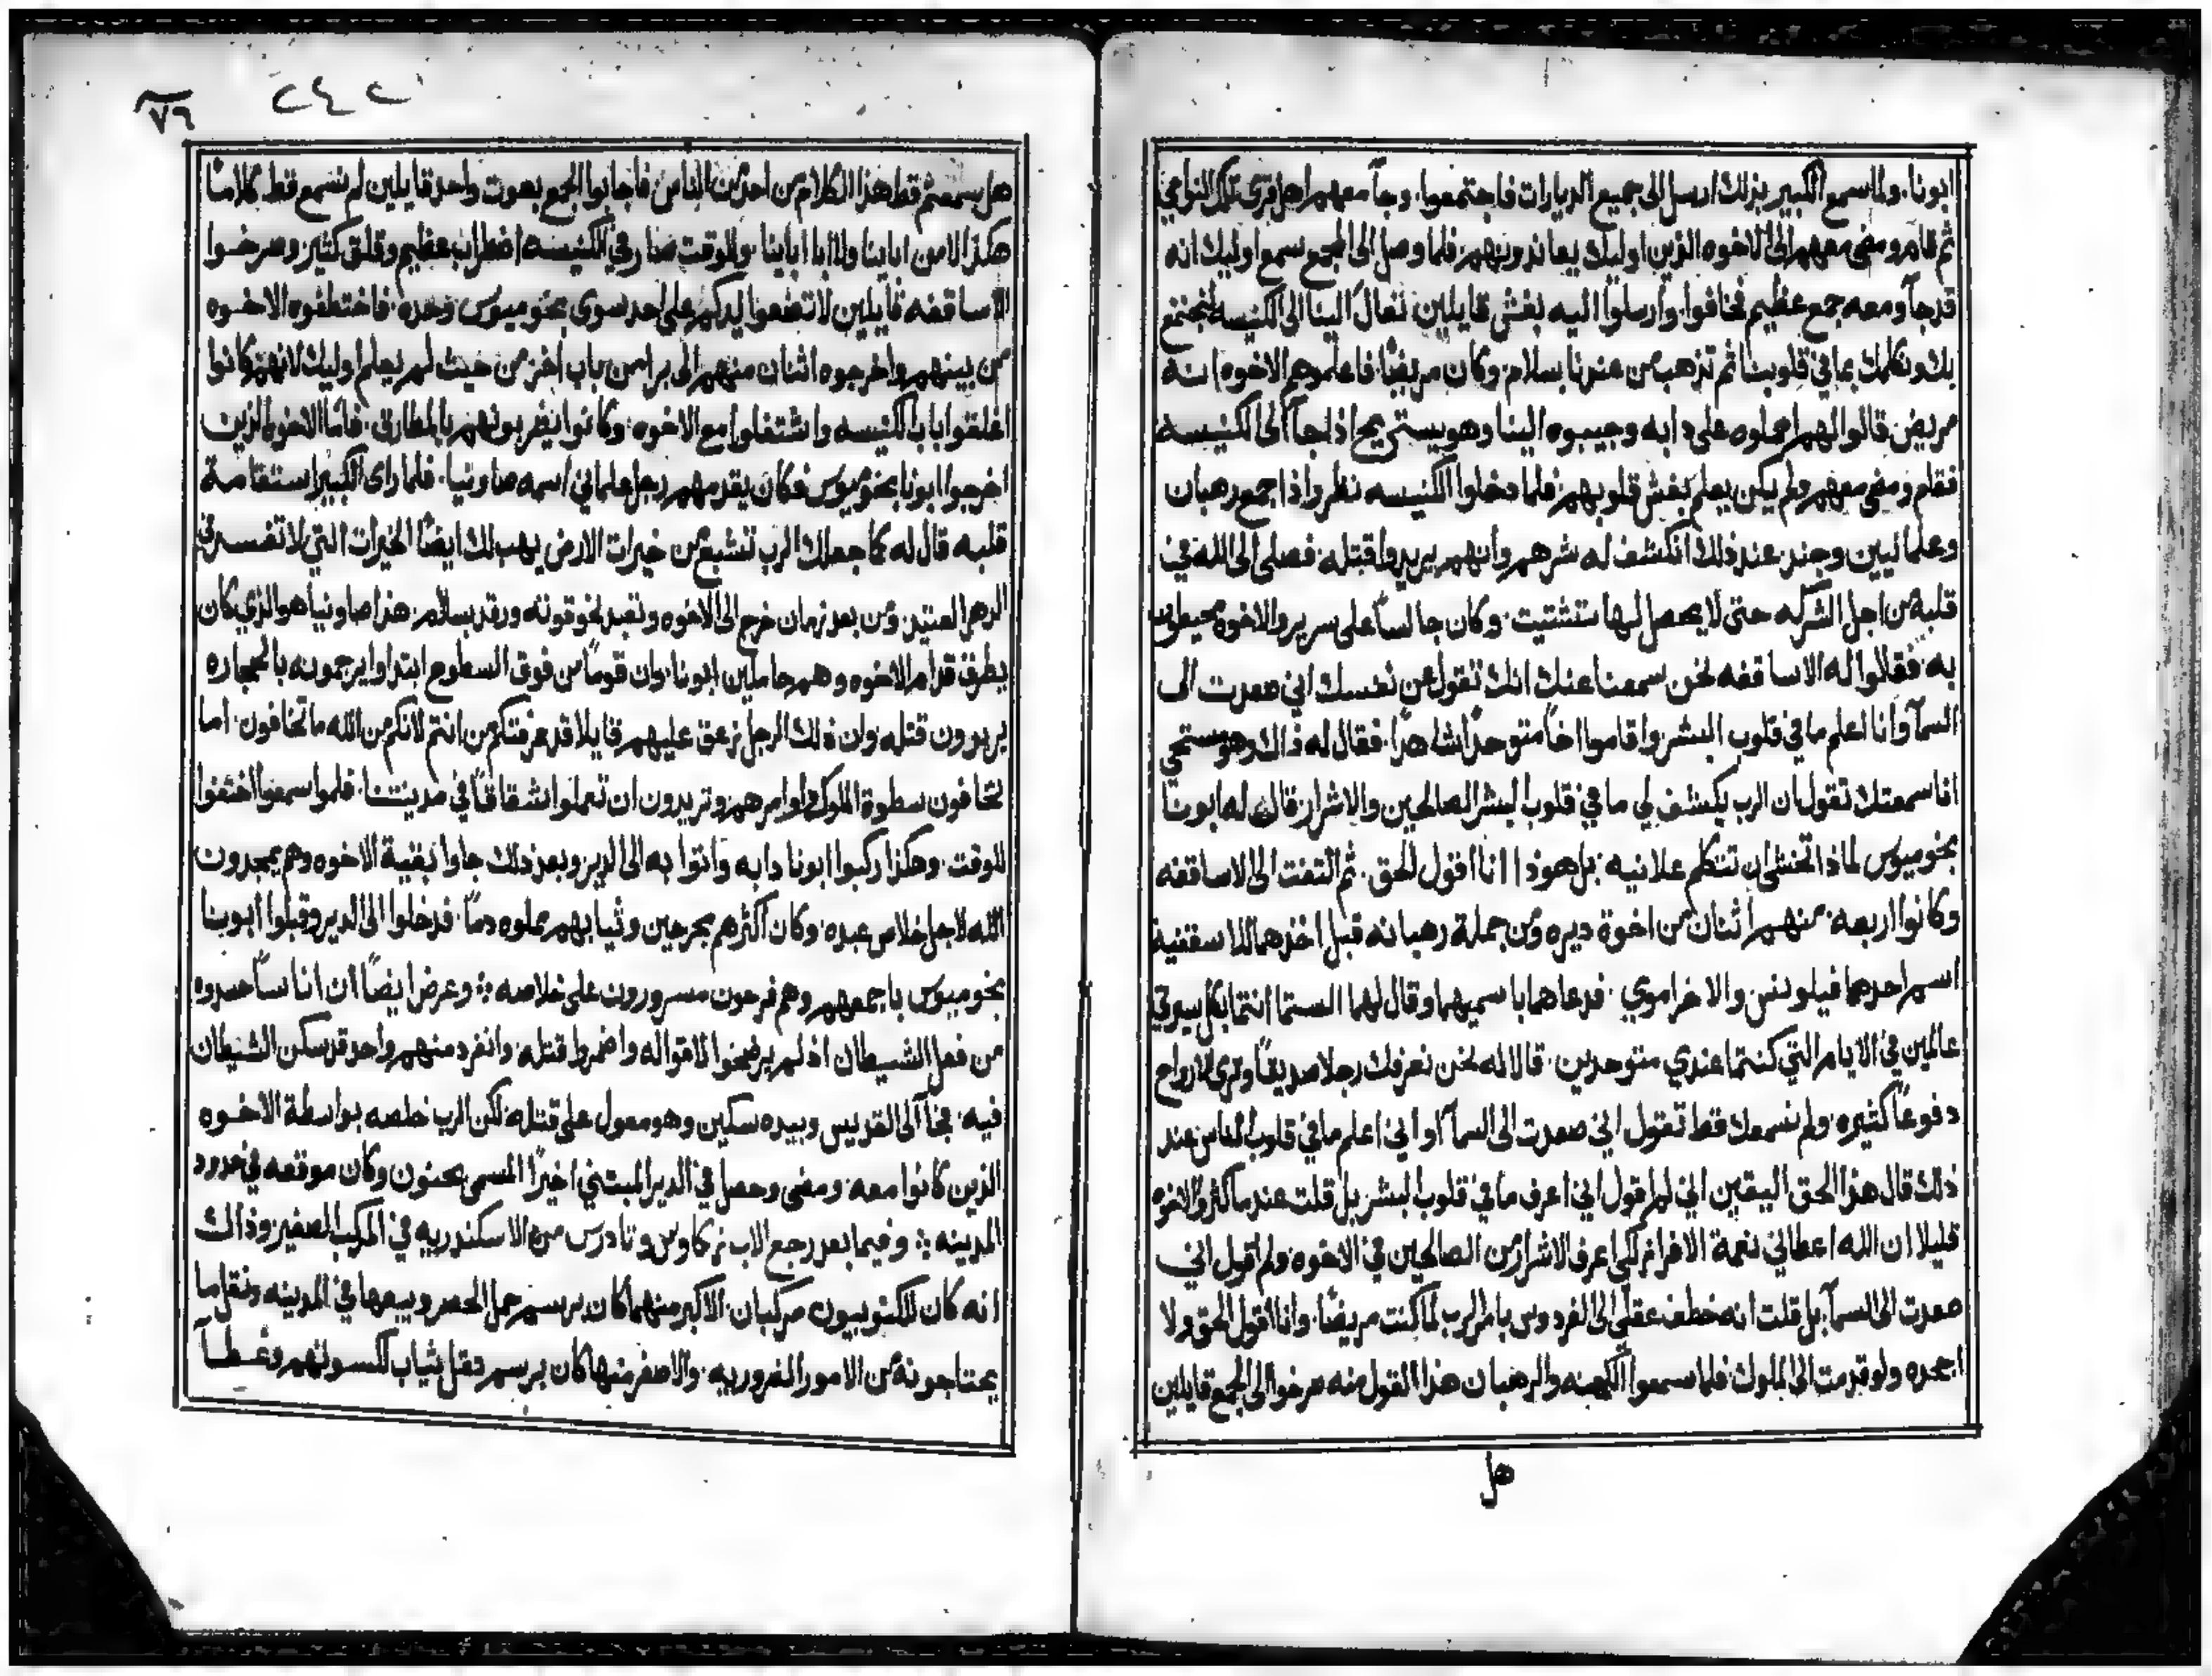 ابونا. ولما سمع الكبير بذلك ارسل الى جميع الديارات فاجتمعوا. وجآ معهم اهل قرى تلك النواحي
ثم قام ومضى معهم الى الاخوه الذين اوليك يعاندونهم فلما وصل الى المجمع سمع اوليك انه
قد جآ ومعه جمع عظيم فخافوا. وارسلوا اليه بغش قايلين. تعال الينا الى الكنيسه لنجتمع
بك ونكلمك بما في قلوبنا ثم تذهب من عندنا بسلام. وكان مريضًا. فاعلموهم الاخوه انه
مريض. قالوا لهم احملوه على دابه وجيبوه الينا وهو يستريح اذا جآ الى الكنيسه
فقام ومضى معهم ولم يكن يعلم بغش قلوبهم. فلما دخلوا الكنيسه نظر واذا جمع رهبان
وعلمانيين وجند. عند ذلك انكشف له شرهم وانهم يريدوا قتله. فصلى الى الله في
قلبه من اجل الشركه حتى لا يحصل لها تشتيت. وكان جالسًا على سرير والاخوه محيطين
به. فقالوا له الاساقفه نحن سمعنا عنك انك تقول عن نفسك اني صعدت الى
السمآ وانا اعلم ما في قلوب البشر. واقاموا اخًا متوحدًا شاهدًا. فقال له ذاك وهو مستحي
انا سمعتك تقول ان الرب يكشف لي ما في قلوب البشر الصالحين والاشرار. قال له ابونا
بخوميوس لماذا تخشى ان تتكلم علانيه. بل هوذا انا اقول الحق. ثم التفت الى الاساقفه
وكانوا اربعه. منهم اثنان من اخوة ديره ومن جملة رهبانه قبل اخذهما للاسقفيه
اسم احدهما فيلوينس والاخر اموي. فدعاهما باسميهما وقال لهما الستما انتما بكل سيرتي
عالمين في الايام التي كنتما عندي متوحدين. قالا له نحن نعرفك رجلا صديقًا وترى الارواح
دفوعًا كثيره. ولم نسمعك قط تقول اني صعدت الى السمآ او اني اعلم ما في قلوب الناس عند
ذلك قال هذا الحق اليقين اني لم اقول اني اعرف ما في قلوب البشر بل قلت عندما كثروا الاخوه
قليلا ان الله اعطاني نعمة الافراز لكي اعرف الاشرار من الصالحين في الاخوه. ولم اقول اني
صعدت الى السمآ. بل قلت انه خطف عقلي الى الفردوس بامر الرب لما كنت مريضًا. وانا اقول الحق ولا
اجحده ولو قدمت الى الملوك. فلما سمعوا الكهنه والرهبان هذا القول منه صرخوا الى الجمع قايلين
هل
٧٦
٢٤٢
هل سمعتم قط هذا الكلام من احد من الناس فاجابوا الجمع بصوت واحد قايلين لم نسمع قط كلامًا
هكذا لا من ابآينا ولا ابا ابآينا. وللوقت صار في الكنيسه اضطراب عظيم وقلق كثير. وصرخوا
الاساقفه قايلين لا تضعوا ايديكم على احد سوى بخوميوس وحده. فاختطفوه الاخوه
من بينهم واخرجوه اثنان منهم الى برا من باب اخر من حيث لم يعلم اوليك لانهم كانوا
اغلقوا باب الكنيسه واشتغلوا مع الاخوه. وكانوا يضربونهم بالمطارق. فاما الاخوه الذين
اخرجوا ابونا بخوميوس فكان يقدمهم رجل علماني اسمه صاونيا. فلما راى الكبير استقامة
قلبه قال له كما جعلك الرب تشبع من خيرات الارض يهب لك ايضًا الخيرات التي لا تفسد في
الدهر العتيد. ومن بعد زمان خرج الى الاخوه وتعبد نحو قوته ورقد بسلام. هذا صاونيا هو الذي كان
يطرق قدام الاخوه وهم حاملين ابونا. وان قومًا من فوق السطوح ابتداوا يرجمونه بالحجاره
يريدون قتله. وان ذلك الرجل زعق عليهم قايلا قد عرفتكم من انتم لانكم من الله ما تخافون. اما
تخافون سطوة الملوك واوامرهم وتريدون ان تعملوا شقاقًا في مدينتنا. فلما سمعوا اختفوا
للوقت. وهكذا ركبوا ابونا دابه واتوا به الى الدير. وبعد ذلك جاوا بقية الاخوه وهم يمجدون
الله لاجل خلاص عبده. وكان اكثرهم مجرحين وثيابهم مملوه دمًا. فدخلوا الى الدير وقبلوا ابونا
بخوميوس باجمعهم وهم فرحون مسرورون على خلاصه. وعرض ايضًا ان اناسًا حسدوه
من فعل الشيطان اذ لم يرضخوا لاقواله واضمروا قتله. وانفرد منهم واحد قد سكن الشيطان
فيه. فجآ الى القديس وبيده سكين وهو معول على قتله. لكن الرب خلصه بواسطة الاخوه
الذين كانوا معه. ومضى وحصل في الدير المبتني اخيرًا المسمى بحنون وكان موقعه في حدود
المدينه. وفيما بعد رجع الاب زكاوس وتادرس من الاسكندريه في المركب الصغير وذلك
انه كان للكنوبيون مركبان. الاكبر منهما كان برسم حمل الحصر وبيعها في المدينه ونقل ما
يحتاجونه من الامور الضروريه. والاصغر منها كان برسم نقل ثياب لكسوتهم وغطآ